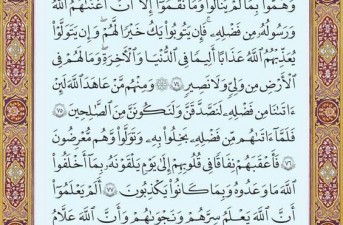 وَهَمُّوا۟ بِمَا لَمْ يَنَالُوا۟ وَمَا نَقَمُوٓا۟ إِلَّآ أَنْ أَغْنَىٰهُمُ ٱللَّهُ
وَرَسُولُهُۥ مِن فَضْلِهِۦ فَإِن يَتُوبُوا۟ يَكُ خَيْرًا لَّهُمْ وَإِن يَتَوَلَّوْا۟
يُعَذِّبْهُمُ ٱللَّهُ عَذَابًا أَلِيمًا فِى ٱلدُّنْيَا وَٱلْءَاخِرَةِ وَمَا لَهُمْ فِى
ٱلْأَرْضِ مِن وَلِىٍّ وَلَا نَصِيرٍ ٧٤ وَمِنْهُم مَّنْ عَٰهَدَ ٱللَّهَ لَئِنْ
ءَاتَىٰنَا مِن فَضْلِهِۦ لَنَصَّدَّقَنَّ وَلَنَكُونَنَّ مِنَ ٱلصَّٰلِحِينَ ٧٥
فَلَمَّآ ءَاتَىٰهُم مِّن فَضْلِهِۦ بَخِلُوا۟ بِهِۦ وَتَوَلَّوا۟ وَّهُم مُّعْرِضُونَ
٧٦ فَأَعْقَبَهُمْ نِفَاقًا فِى قُلُوبِهِمْ إِلَىٰ يَوْمِ يَلْقَوْنَهُۥ بِمَآ أَخْلَفُوا۟
ٱللَّهَ مَا وَعَدُوهُ وَبِمَا كَانُوا۟ يَكْذِبُونَ ٧٧ أَلَمْ يَعْلَمُوٓا۟
أَنَّ ٱللَّهَ يَعْلَمُ سِرَّهُمْ وَنَجْوَىٰهُمْ وَأَنَّ ٱللَّهَ عَلَّٰمُ